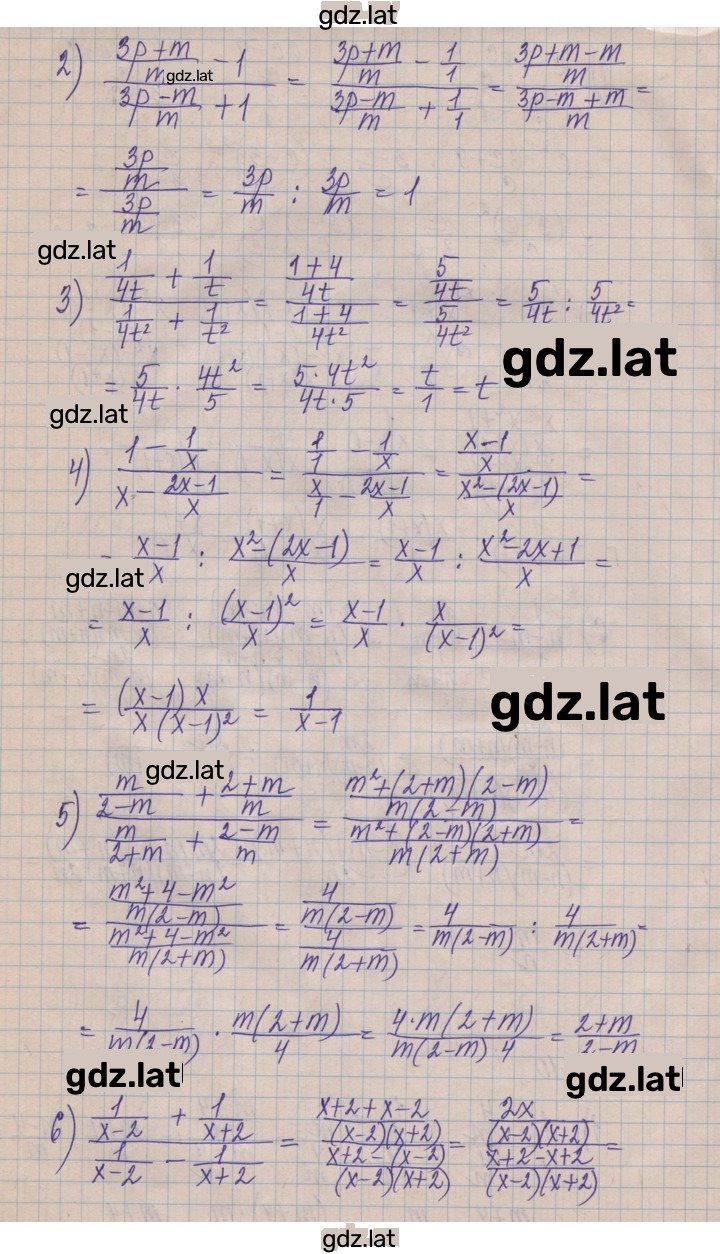 gdz.lat
2) ((3p+m)/m - 1)/((3p-m)/m + 1) = ((3p+m)/m - 1/1)/((3p-m)/m + 1/1) = ((3p+m-m)/m)/((3p-m+m)/m) =
gdz.lat
= (3p/m)/(3p/m) = 3p/m : 3p/m = 1
gdz.lat
3) (1/4t + 1/t)/(1/4t² + 1/t²) = ((1+4)/4t)/((1+4)/4t²) = (5/4t)/(5/4t²) = 5/4t : 5/4t² =
gdz.lat
= 5/4t · 4t²/5 = (5·4t²)/(4t·5) = t/1 = t
gdz.lat
4) (1 - 1/x)/(x - (2x-1)/x) = (1/1 - 1/x)/(x/1 - (2x-1)/x) = ((x-1)/x)/((x²-(2x-1))/x) =
- (x-1)/x : (x²-(2x-1))/x = (x-1)/x : (x²-2x+1)/x =
gdz.lat
= (x-1)/x : (x-1)²/x = (x-1)/x · x/(x-1)² =
= ((x-1)x)/(x(x-1)²) = 1/(x-1)
gdz.lat
gdz.lat
5) (m/(2-m) + (2+m)/m)/(m/(2+m) + (2-m)/m) = ((m²+(2+m)(2-m))/(m(2-m)))/((m²+(2-m)(2+m))/(m(2+m))) =
= ((m²+4-m²)/(m(2-m)))/((m²+4-m²)/(m(2+m))) = (4/(m(2-m)))/(4/(m(2+m))) = 4/(m(2-m)) : 4/(m(2+m)) =
= 4/(m(2-m)) · (m(2+m))/4 = (4·m(2+m))/(m(2-m)4) = (2+m)/(2-m)
gdz.lat
gdz.lat
6) (1/(x-2) + 1/(x+2))/(1/(x-2) - 1/(x+2)) = ((x+2+x-2)/((x-2)(x+2)))/((x+2-(x-2))/((x-2)(x+2))) = (2x/((x-2)(x+2)))/((x+2-x+2)/((x-2)(x+2))) =
gdz.lat